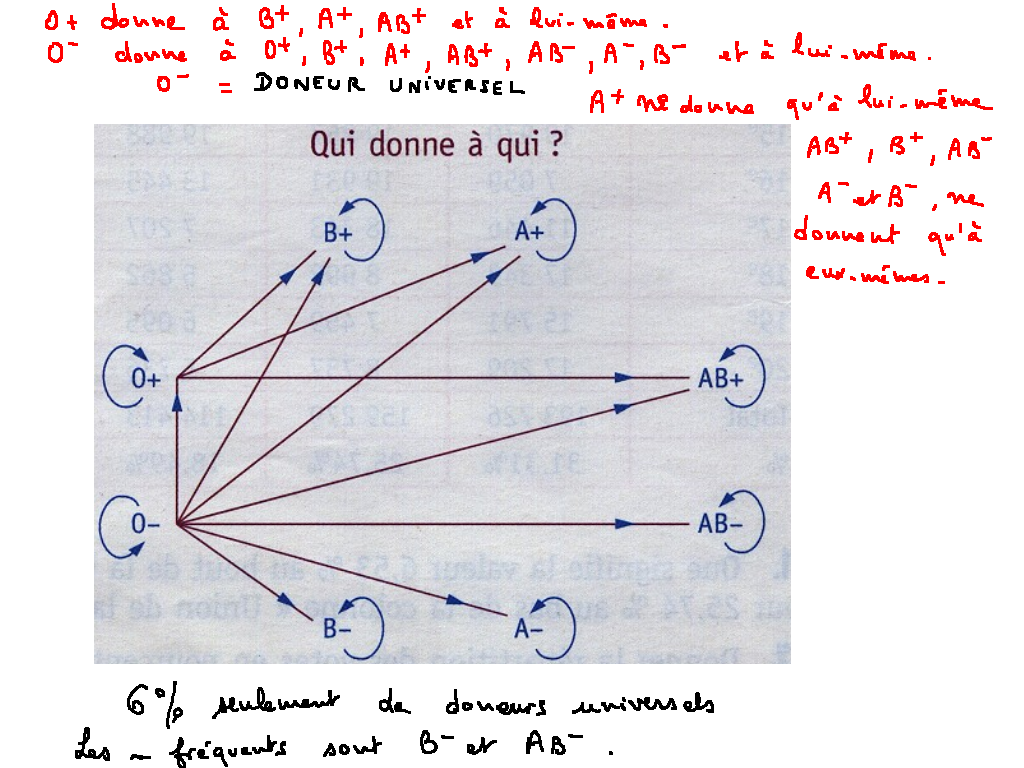 O+ donne à B+, A+, AB+ et à lui-même.
O- donne à O+, B+, A+, AB+, AB-, A-, B- et à lui-même.
O- = DONEUR UNIVERSEL
A+ ne donne qu'à lui-même
AB+, B+, AB-
A- et B-, ne
donnent qu'à
eux-mêmes.
Qui donne à qui ?
B+ A+
O+ AB+
O- AB-
B- A-
6% seulement de doneurs universels
Les - fréquents sont B- et AB-.